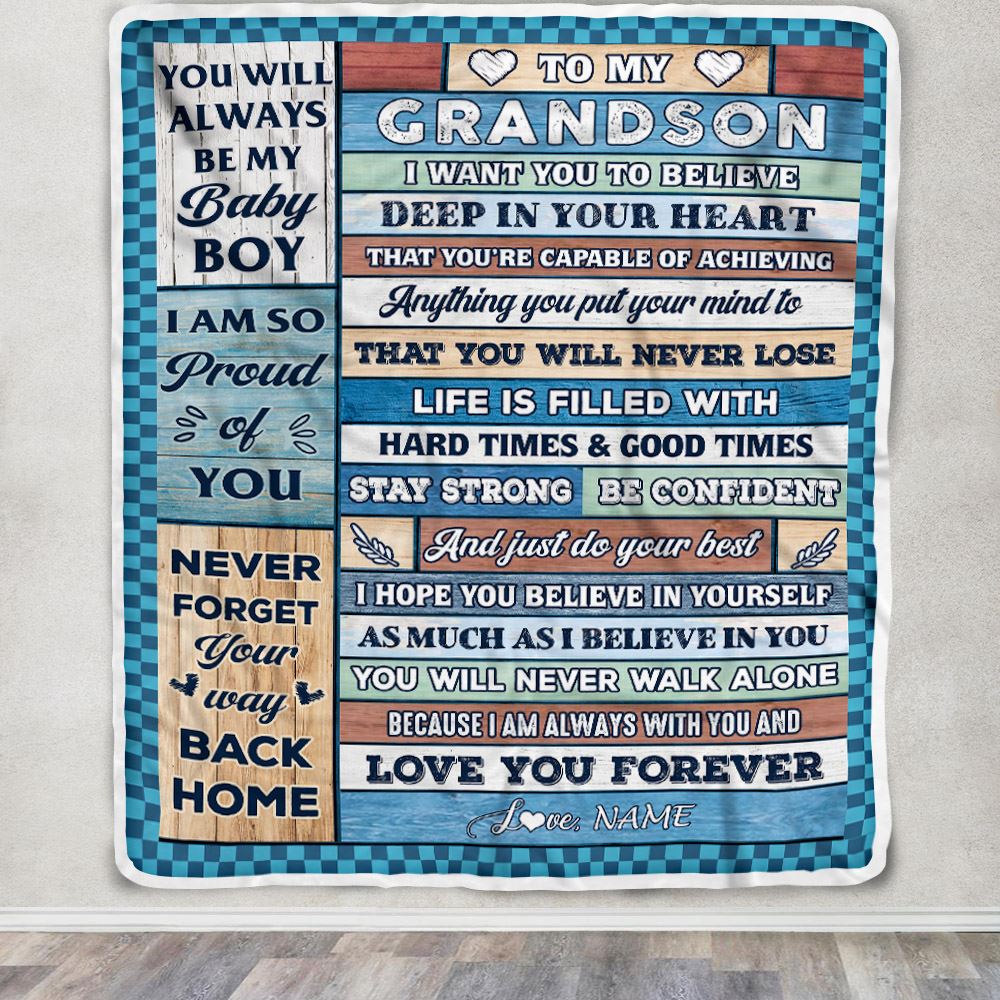 YOU WILL
ALWAYS
BE MY
Baby
BOY
I AM SO
Proud
of
YOU
NEVER
FORGET
Your
way
BACK
HOME
TO MY
GRANDSON
I WANT YOU TO BELIEVE
DEEP IN YOUR HEART
THAT YOU'RE CAPABLE OF ACHIEVING
Anything you put your mind to
THAT YOU WILL NEVER LOSE
LIFE IS FILLED WITH
HARD TIMES & GOOD TIMES
STAY STRONG BE CONFIDENT
And just do your best
I HOPE YOU BELIEVE IN YOURSELF
AS MUCH AS I BELIEVE IN YOU
YOU WILL NEVER WALK ALONE
BECAUSE I AM ALWAYS WITH YOU AND
LOVE YOU FOREVER
Love, NAME